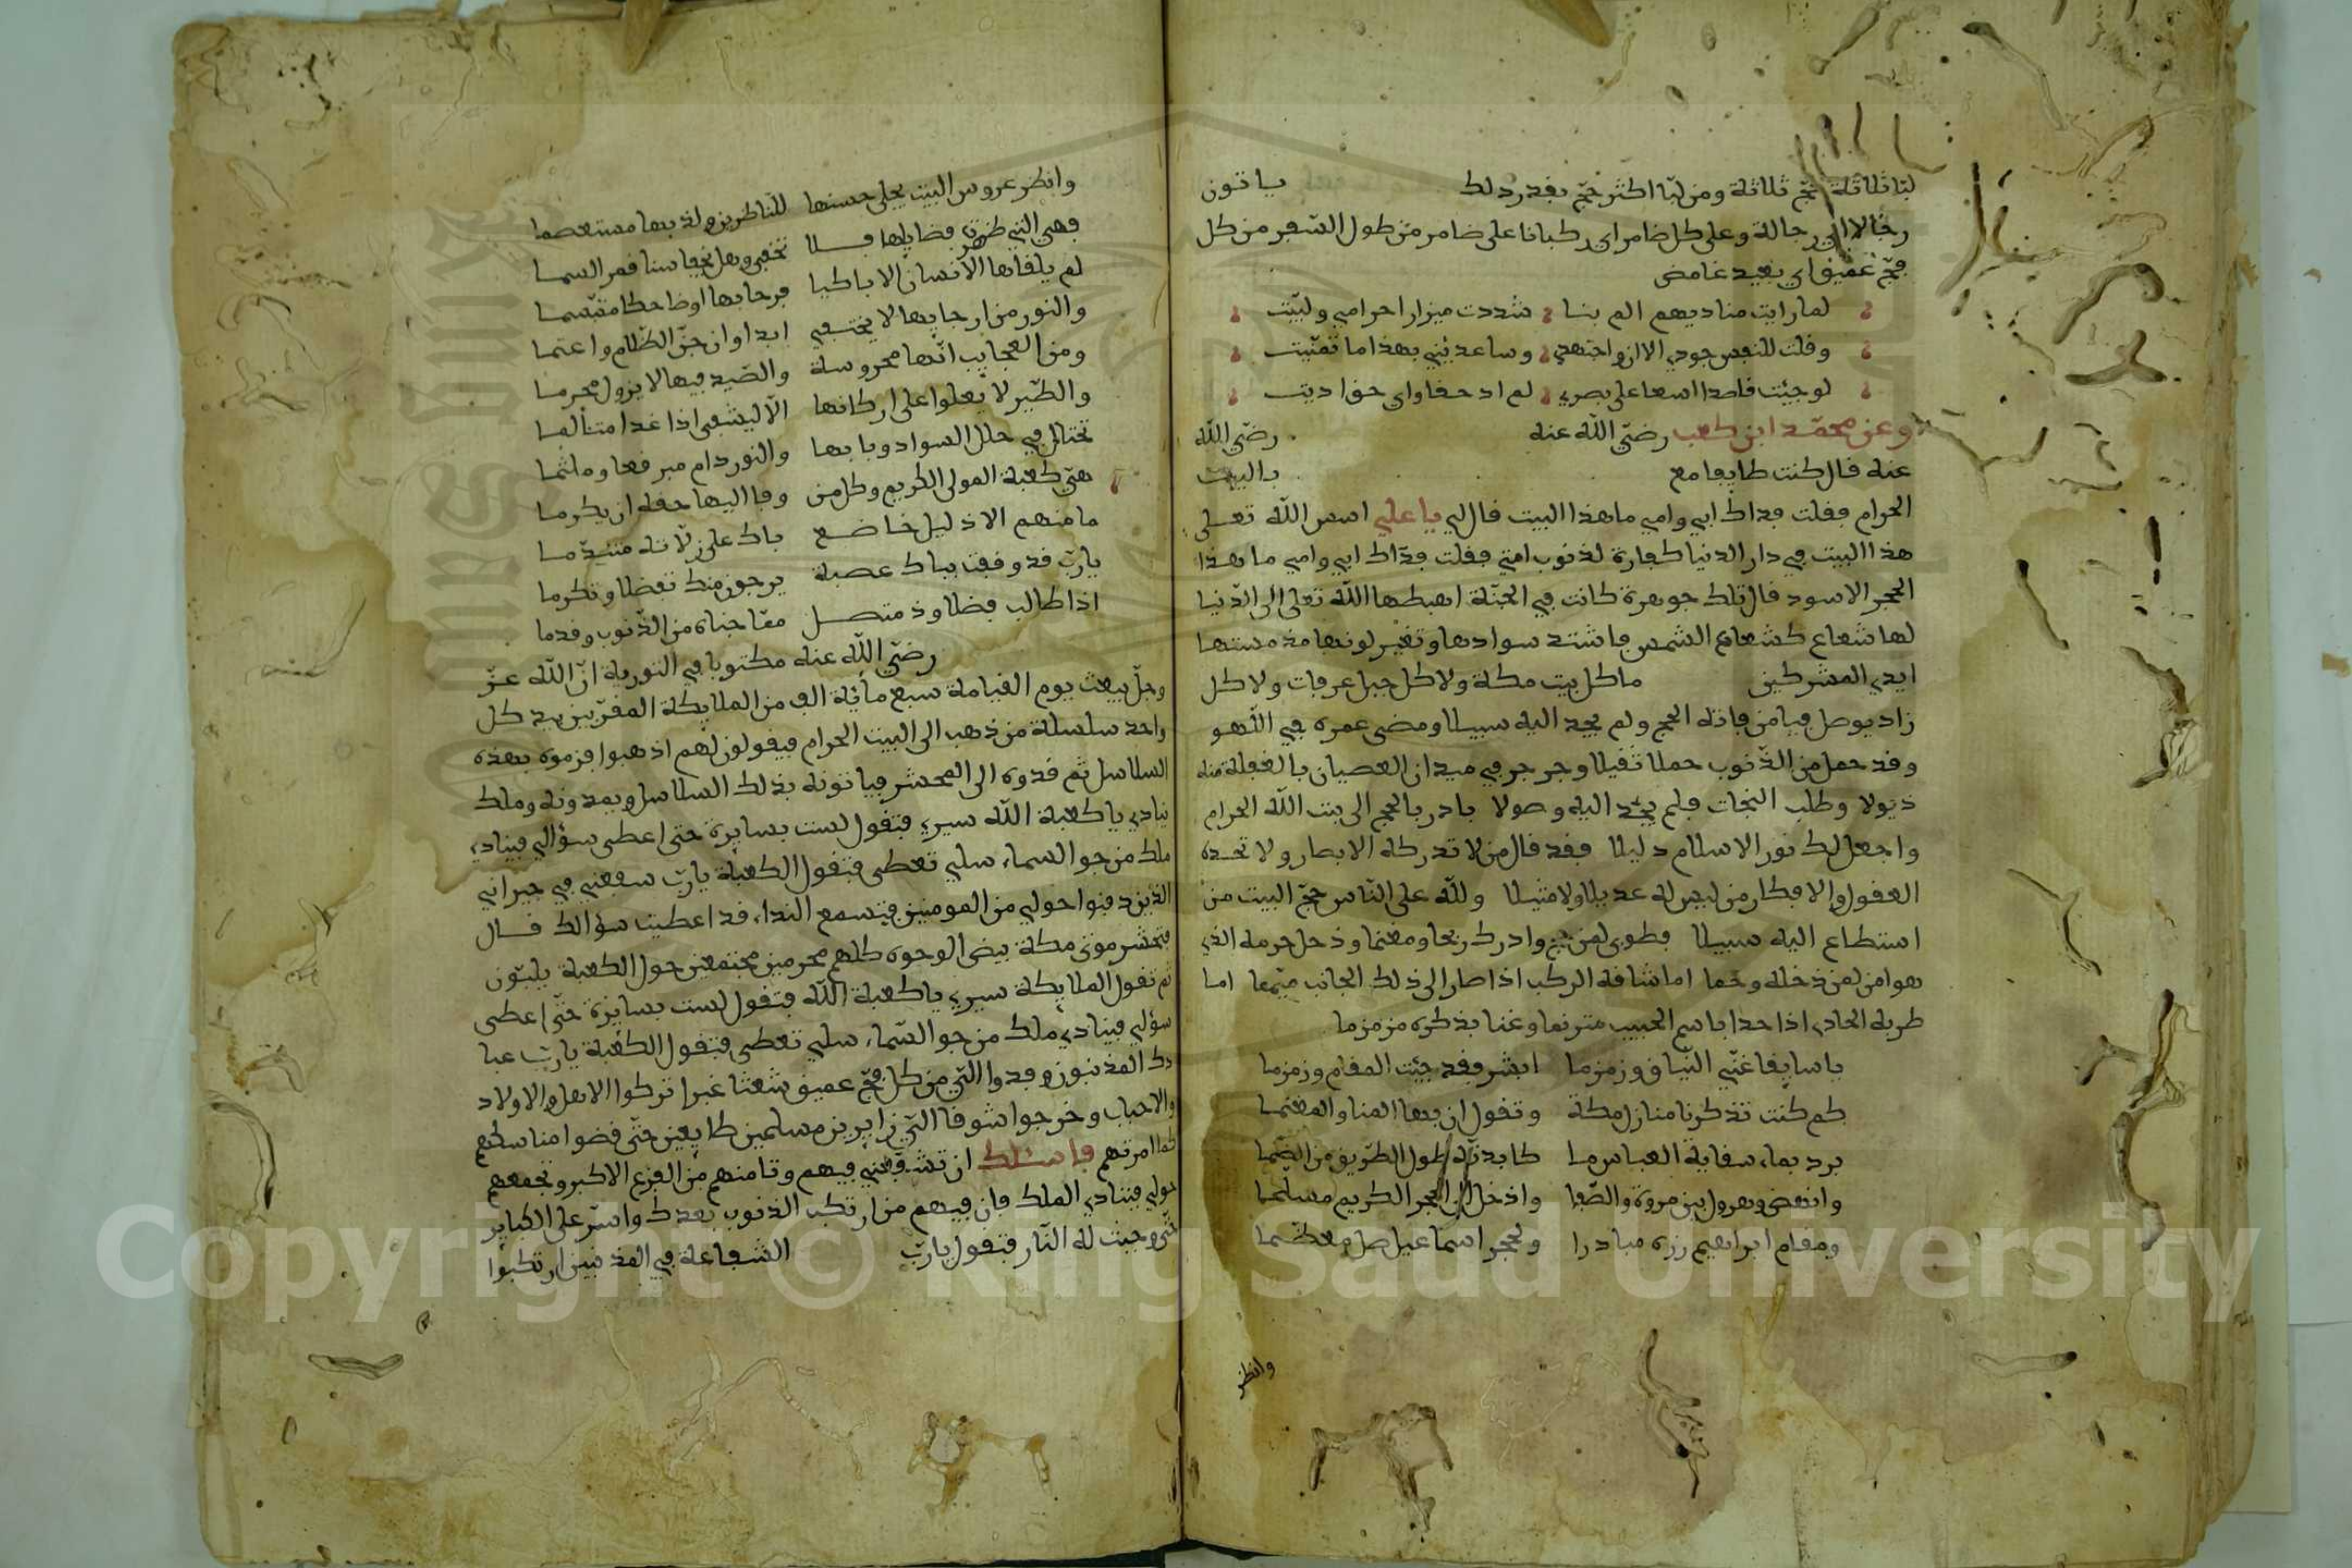 لبّا ثلاثة حجّ ثلاثة ومن لبّا اكثر حجّ بقدر ذلك ياتون
رجالا اي رجالة وعلى كل ضامر اي ركبانا على ضامر من طول السّفر من كل
فجّ عميق اي بعيد غامض
لما رايت مناديهم الم بنا شددت ميزار احرامي ولبّيت
وقلت للنفس جودي الان واجتهدي وساعديني بهذا ما تمنّيت
لو جئت قاصدا اسعا على بصري لم اد حقا واي حق اديت
وعن محمّد ابن كعب رضيّ الله عنه رضيّ الله
عنه قال كنت طايفا مع بالبيت
الحرام فقلت فداك ابي وامي ما هذا البيت قال لي يا علي اسس الله تعلى
هذا البيت في دار الدنيا كفارة لذنوب امتي فقلت فداك ابي وامي ما هذا
الحجر الاسود قال تلك جوهرة كانت في الجنّة اهبطها الله تعلى الى الدّنيا
لها شعاع كشعاع الشمس فاشتد سوادها وتغير لونها مذ مستها
ايدي المشركين ما كل بيت مكة ولا كل جبل عرفات ولا كل
زاد يوصل فيا من فاته الحج ولم يجد اليه سبيلا ومضى عمره في اللهو
وقد حمل من الذّنوب حملا ثقيلا وجرجر في ميدان العصيان بالغفلة منه
ذيولا وطلب النجات فلم يجد اليه وصولا بادر بالحج الى بيت الله الحرام
واجعل لك نور الاسلام دليلا فقد قال من لا تدركه الابصار ولا تحده
العقول والافكار من ليس له عديلا ولا مثيلا ولله على النّاس حجّ البيت من
استطاع اليه سبيلا فطوبى لمن حج وادرك ربحا ومغنما ودخل حرمه الذي
هو امن لمن دخله وحما اما شاقه الركب اذا صار الى ذلك الجانب ميّمما اما
طربه الحادي اذا حدا باسم الحبيب مترنما وغنا بذكره مزمزما
يا سايقا غنّي النّياق وزمزما ابشر فقد جئت المقام وزمزما
كم كنت تذكرنا منازل مكة وتقول ان بها المنا والمغنما
برد بماء سقاية العباس ما كابدته طول الطّريق من الضّما
وانهض وهرول بين مروة والصّفا وادخل الى الحجر الكريم مسلّما
ومقام ابراهيم زره مبادرا ولحجر اسماعيل صل معظّما
وانظر
وانظر عروس البيت يجلى حسنها للنّاظرين ولذ بها مستعصما
فهي التي ظهرت فضايلها فلا تخفى وهل يخفا سنا قمر السما
لم يلقاها الانسان الا باكيا فرحا بها او ضاحكا متبّسما
والنور من ارجايها لا يختفي ابدا وان جنّ الظّلام واعتما
ومن العجايب انّها محروسة والصّيد فيها لا يزول محرما
والطّير لا يعلوا على اركانها الاّ ليشفى اذا غدا متألما
تختال في حلل السواد وبابها والنور دام مبرقعا وملثما
هيّ كعبة المولى الكريم وكل من وفا اليها حقه ان يكرما
ما منهم الا ذليل خاضع باك على زلاّته متندّما
يا ربّ قد وقفت ببابك عصبة يرجون منك تفضلا وتكرما
اذا طالب فضلا وذ متصل ممّا جناه من الذّنوب وقدما
رضيّ الله عنه مكتوبا في التورية انّ الله عزّ
وجلّ يبعث يوم القيامة سبع مائة الف من الملايكة المقرّبين بيد كل
واحد سلسلة من ذهب الى البيت الحرام فيقول لهم اذهبوا فزموه بهذه
السلاسل ثم قدوه الى المحشر فياتونه بذلك السلاسل ويمدونه وملك
ينادي يا كعبة الله سيري فتقول لست بسايرة حتى اعطى سؤالي فينادي
ملك من جو السماء سلي تعطى فتقول الكعبة يا ربّ شفعني في جيراني
الذين دفنوا حولي من المومنين فتسمع النداء قد اعطيت سؤالك قال
فتحشر موتى مكة بيض الوجوه كلهم محرمين مجتمعين حول الكعبة يلبّون
ثم تقول الملايكة سيري يا كعبة الله فتقول لست بسايرة حتّى اعطى
سؤلي فينادي ملك من جو السّماء سلي تعطى فتقول الكعبة يا ربّ عبا
دك المذنبون وفدوا اليّ من كل فجّ عميق شعثا غبرا تركوا الاهل والاولاد
والاحباب وخرجوا شوقا اليّ زايرين مسلمين طايعين حتّى قضوا مناسكهم
كما امرتهم فاسئلك ان تشفّعني فيهم وتامنهم من الفزع الاكبر وتجمعهم
حولي فينادي الملك فان فيهم من ارتكب الذنوب بعدك واسرّ على الكباير
حتّى وجبت له النّار فتقول يا ربّ الشفاعة في المذنبين ارتكبوا
Copyright © King Saud University